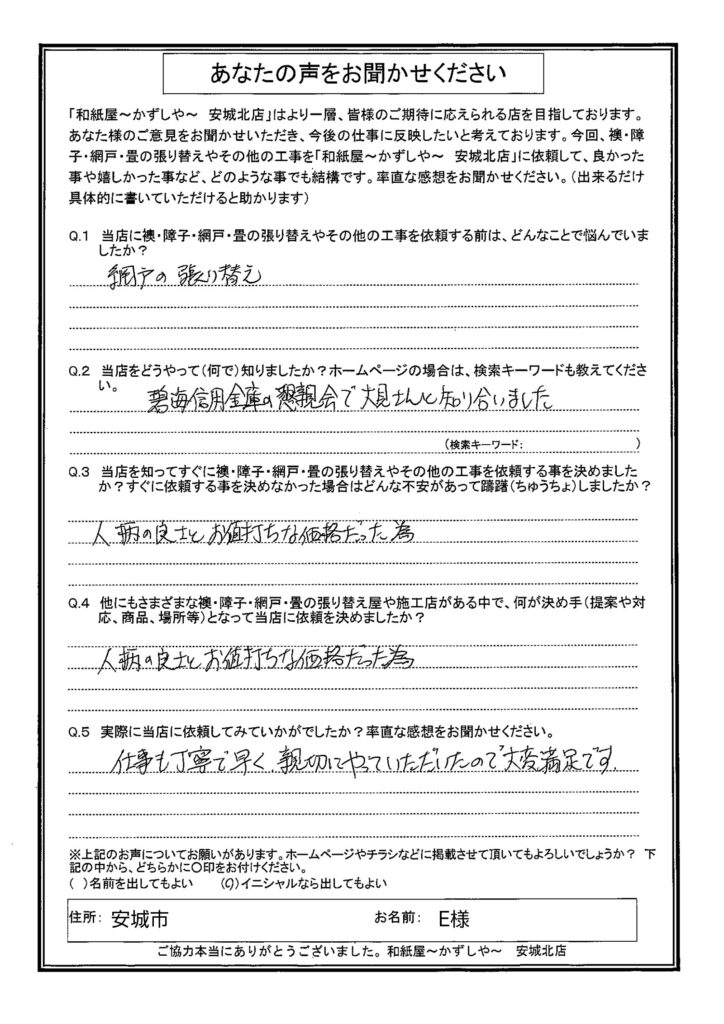 あなたの声をお聞かせください
「和紙屋～かずしや～　安城北店」はより一層、皆様のご期待に応えられる店を目指しております。
あなた様のご意見をお聞かせいただき、今後の仕事に反映したいと考えております。今回、襖・障
子・網戸・畳の張り替えやその他の工事を「和紙屋～かずしや～　安城北店」に依頼して、良かった
事や嬉しかった事など、どのような事でも結構です。率直な感想をお聞かせください。（出来るだけ
具体的に書いていただけると助かります）
Q.1　当店に襖・障子・網戸・畳の張り替えやその他の工事を依頼する前は、どんなことで悩んでいま
したか？
網戸の張り替え
Q.2　当店をどうやって（何で）知りましたか？ホームページの場合は、検索キーワードも教えてくださ
い。
碧海信用金庫の懇親会で大見さんと知り合いました
（検索キーワード：　　　　　　　　）
Q.3　当店を知ってすぐに襖・障子・網戸・畳の張り替えやその他の工事を依頼する事を決めました
か？すぐに依頼する事を決めなかった場合はどんな不安があって躊躇（ちゅうちょ）しましたか？
人柄の良さとお値打ちな価格だった為
Q.4　他にもさまざまな襖・障子・網戸・畳の張り替え屋や施工店がある中で、何が決め手（提案や対
応、商品、場所等）となって当店に依頼を決めましたか？
人柄の良さとお値打ちな価格だった為
Q.5　実際に当店に依頼してみていかがでしたか？率直な感想をお聞かせください。
仕事も丁寧で早く、親切にやっていただいたので大変満足です。
※上記のお声についてお願いがあります。ホームページやチラシなどに掲載させて頂いてもよろしいでしょうか？　下
記の中から、どちらかに〇印をお付けください。
（　）名前を出してもよい　　（〇）イニシャルなら出してもよい
住所： 安城市　　お名前： E様
ご協力本当にありがとうございました。和紙屋～かずしや～　安城北店